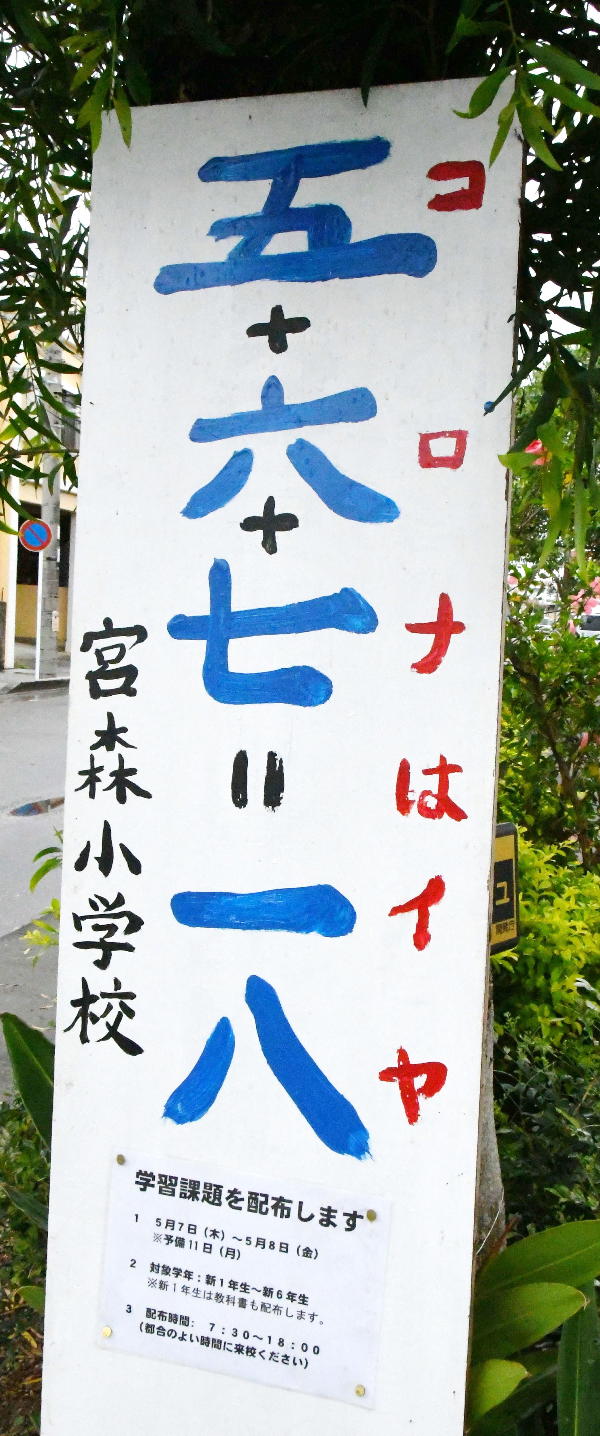 コロナはイヤ
五+六+七=一八
宮森小学校
学習課題を配布します
1 5月7日（木）～5月8日（金）
※予備11日（月）
2 対象学年：新1年生～新6年生
※新1年生は教科書も配布します。
3 配布時間: 7：30～18：00
（都合のよい時間に来校ください）
ユ